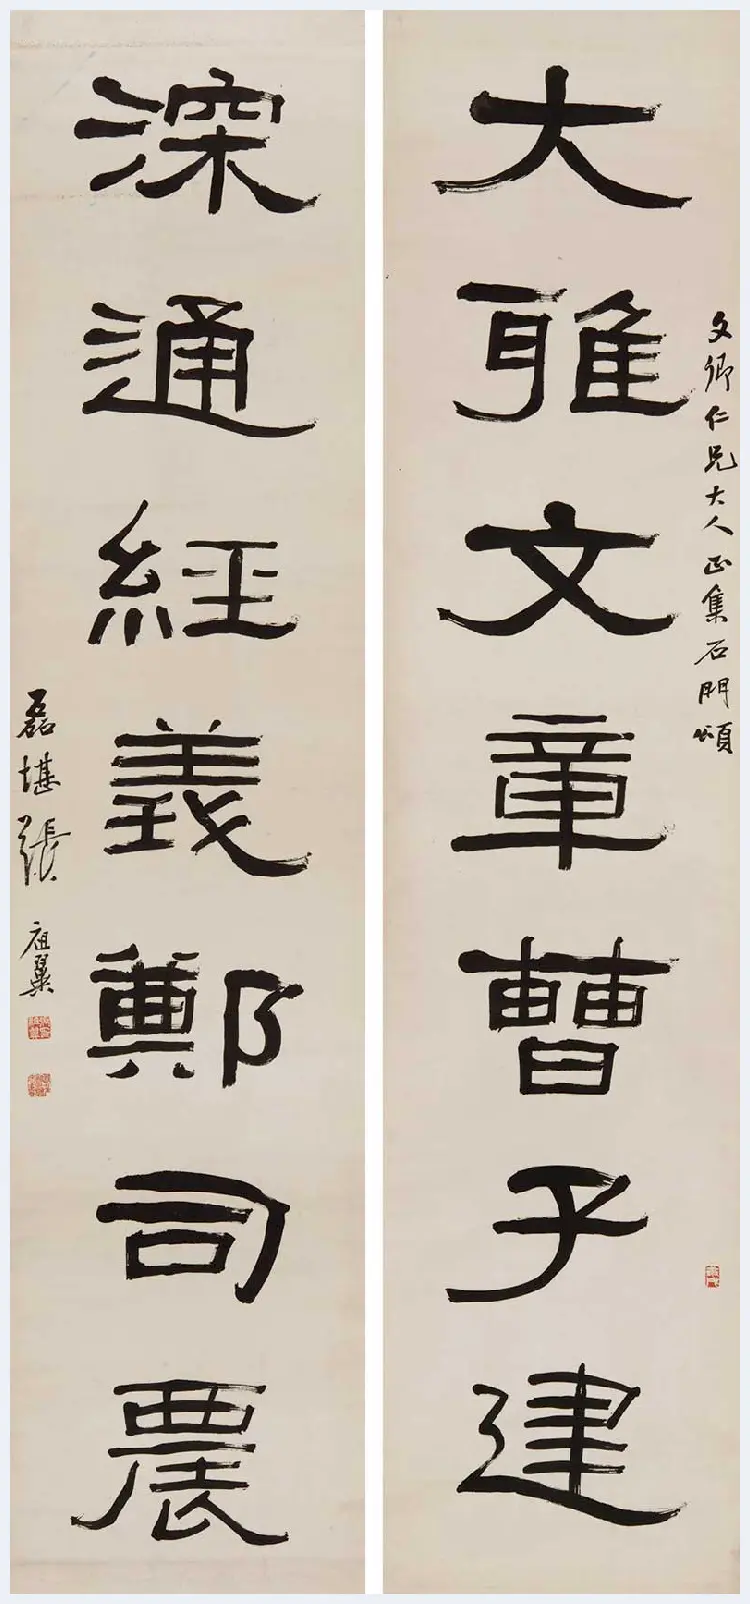 文卿仁兄大人正集石門頌
大雅文章曹子建
深通經義鄭司農
磊堪張祖翼